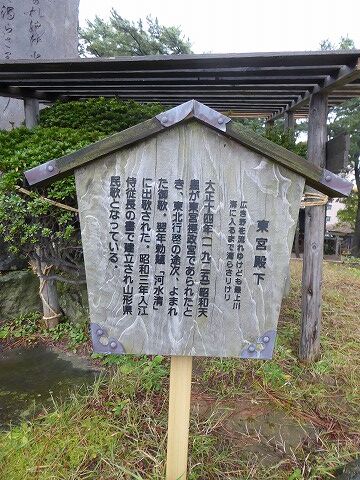 東宮殿下
広き野を流れゆけども最上川
海に入るまで濁らざりけり
大正十四年(一九二五)昭和天
皇が東宮摂政宮であられたと
き、東北行啓の途次、よまれ
た御歌。翌年勅題「河水清」
に出歌された。昭和三年入江
侍従長の書で建立され山形県
民歌となっている。